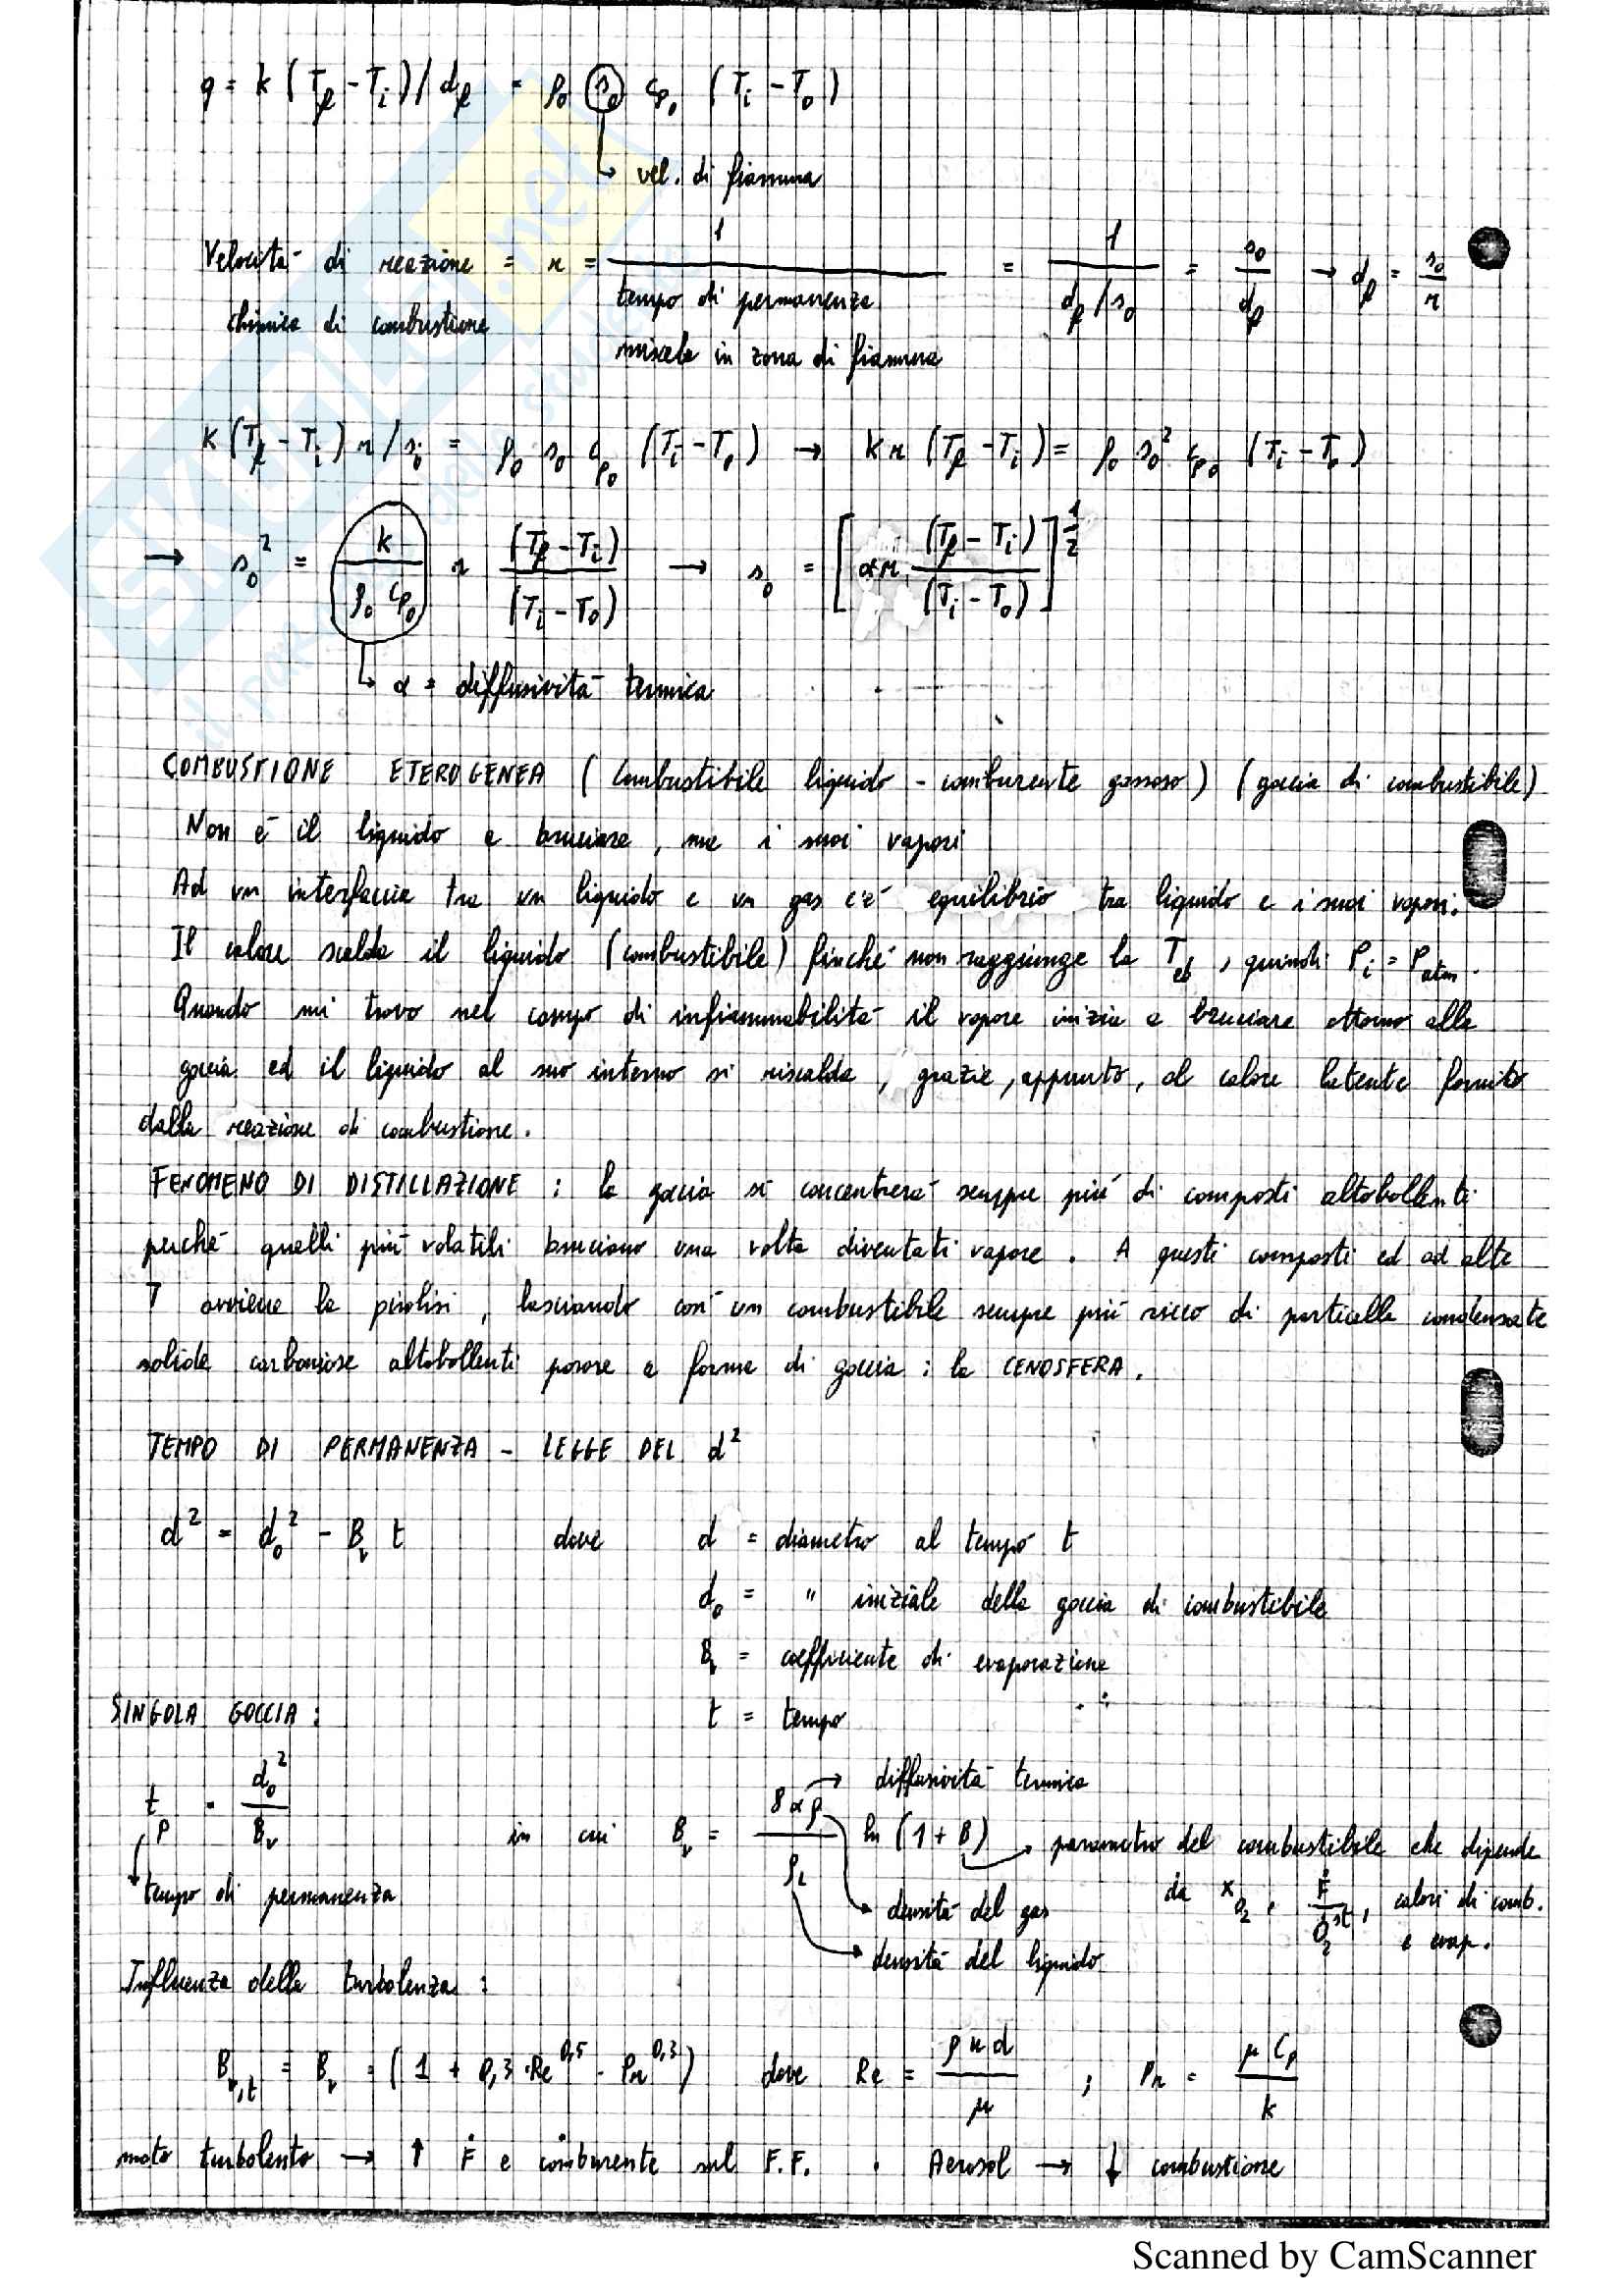 q = k (Tf - Ti) / df = ρ0 s0 cp0 (Ti - T0)
↳ vel. di fiamma
Velocità di reazione chimica di combustione = r = 1 / tempo di permanenza miscela in zona di fiamma = 1 / (df / s0) = s0 / df → df = s0 / r
k (Tf - Ti) r / s0 = ρ0 s0 cp0 (Ti - T0) → k r (Tf - Ti) = ρ0 s0² cp0 (Ti - T0)
→ s0² = k / (ρ0 cp0) r (Tf - Ti) / (Ti - T0) → s0 = [α r (Tf - Ti) / (Ti - T0)]^1/2
↳ α = diffusività termica
COMBUSTIONE ETEROGENEA (combustibile liquido - comburente gassoso) (goccia di combustibile)
Non è il liquido a bruciare, ma i suoi vapori
Ad un interfaccia tra un liquido e un gas c'è equilibrio tra liquido e i suoi vapori.
Il calore scalda il liquido (combustibile) finché non raggiunge la Teb, quindi Pi = Patm.
Quando mi trovo nel campo di infiammabilità il vapore inizia a bruciare attorno alla
goccia ed il liquido al suo interno si riscalda, grazie, appunto, al calore latente fornito
dalla reazione di combustione.
FENOMENO DI DISTILLAZIONE: la goccia si concentrerà sempre più di composti altobollenti
perché quelli più volatili bruciano una volta diventati vapore. A questi composti ed ad alte
T avviene la pirolisi, lasciando così un combustibile sempre più ricco di particelle condensate
solide carboniose altobollenti porose a forma di goccia: la CENOSFERA.
TEMPO DI PERMANENZA - LEGGE DEL d²
d² = d0² - Bv t dove d = diametro al tempo t
d0 = " iniziale della goccia di combustibile
Bv = coefficiente di evaporazione
t = tempo
SINGOLA GOCCIA:
tp = d0² / Bv in cui Bv = 8αρ / ρL ln (1 + B)
→ diffusività termica
→ parametro del combustibile che dipende
da xO2, Ḟ / Ȯ2 st, calori di comb.
e evap.
tempo di permanenza
→ densità del gas
→ densità del liquido
Influenza della turbolenza:
Bv,t = Bv · (1 + 0,3 · Re^0,5 · Pr^0,3) dove Re = ρ u d / μ ; Pr = μ Cp / k
moto turbolento → ↑ Ḟ e comburente sul F.F. . Aerosol → ↓ combustione
Scanned by CamScanner